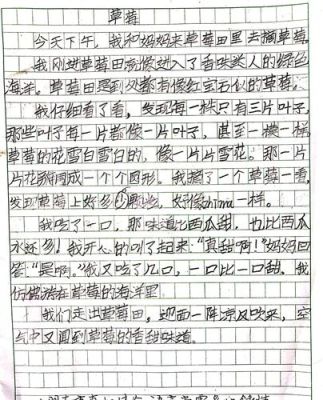 草莓
今天下午，我和妈妈来草莓田里去摘草莓。
我刚进草莓田就像进入了香味迷人的绿色
海洋。草莓田里到处都有像红宝石似的草莓。
我仔细看了看，发现每一株只有三片叶子，
那些叶子每一片都像一片叶子，甚至一模一样。
草莓的花雪白雪白的，像一片片雪花。那一片
片花瓣围成一个个图形。我摘了一个草莓一看，
发现草莓上好多小黑，好像一样。
我吃了一口，那味道比西瓜甜，也比西瓜
水还多！我开心的叫了起来："真甜啊！"妈妈回
答："是啊。"我又吃了几口，一口比一口甜，我
仿佛游在草莓的海洋里。
我们走出草莓田，迎面一阵凉风吹来，空
气中又闻到草莓的香甜味道。